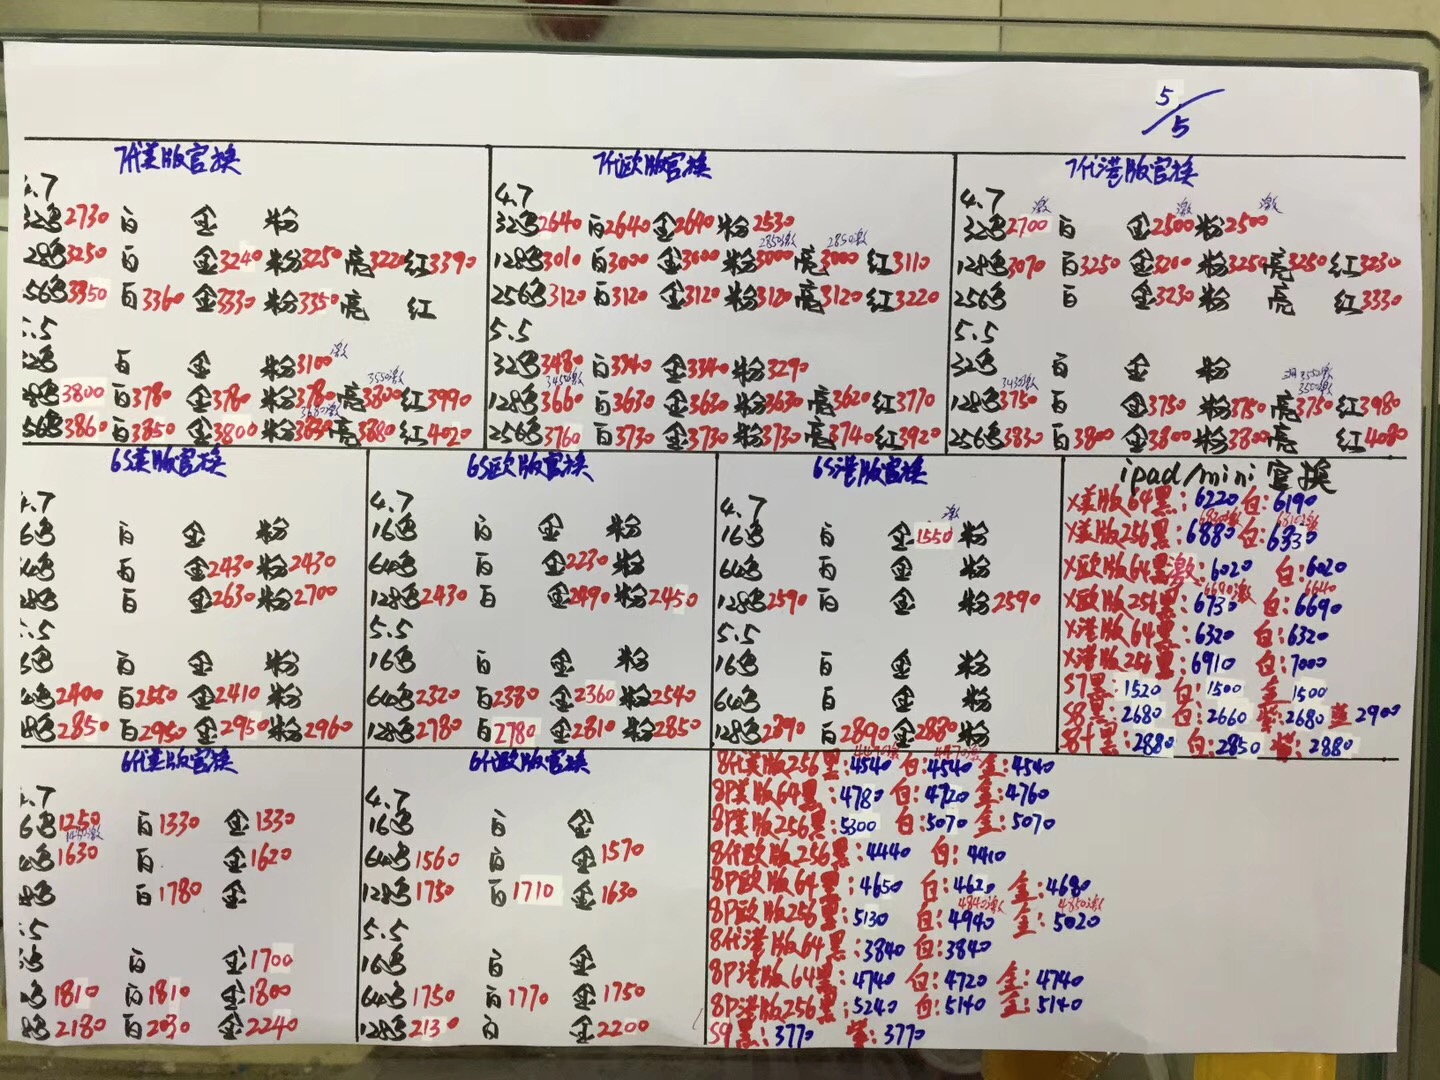 5/5
7代美版官换
4.7
32鸣2730 百 金 粉
128鸣3250 百 金3240 粉3250 亮3220 红3390
256鸣3350 百3360 金3330 粉3350 亮 红
5.5
32鸣 百 金 粉3100激
3550激
128鸣3800 百3780 金3780 粉3780 亮3800 红3990
3680激
256鸣3860 百3850 金3800 粉 亮3880 红4020
7代欧版官换
4.7
32鸣2640 百2640 金2640 粉2530
2850激 2850激
128鸣3010 百3000 金3000 粉3000 亮3000 红3110
256鸣3120 百3120 金3120 粉3120 亮3120 红3220
5.5
32鸣3480 百3340 金3340 粉3290
3450激
128鸣3660 百3630 金3630 粉3630 亮3620 红3770
256鸣3760 百3730 金3730 粉3730 亮3740 红3920
7代港版官换
4.7
激 激 激
32鸣2700 百 金2500 粉2500
128鸣3070 百3250 金3200 粉3250 亮3250 红3230
256鸣 百 金3230 粉 亮 红3330
5.5
32鸣 百 金 粉
3430激 3550激
3500激
128鸣3750 百 金3750 粉3750 亮3730 红3980
256鸣3830 百3800 金3800 粉3800 亮 红4080
6S美版官换
4.7
16鸣 百 金 粉
64鸣 百 金2430 粉2430
128鸣 百 金2630 粉2700
5.5
16鸣 百 金 粉
64鸣2400 百2550 金2410 粉
128鸣2850 百2950 金2950 粉2960
6S欧版官换
4.7
16鸣 百 金 粉
64鸣 百 金2230 粉
128鸣2430 百 金2490 粉2450
5.5
16鸣 百 金 粉
64鸣2320 百2380 金2360 粉2540
128鸣2780 百2780 金2810 粉2850
6S港版官换
4.7
激
16鸣 百 金1550 粉
64鸣 百 金 粉
128鸣2590 百 金 粉2590
5.5
16鸣 百 金 粉
64鸣 百 金 粉
128鸣2890 百2890 金2880 粉
ipad/mini官换
X美版64黑:6220 白:6190
X美版256黑:6880 白:
X欧版64黑激:6020 白:6020
6690激 6640
X欧版256黑:6730 白:6690
X港版64黑:6320 白:6320
X港版256黑:6910 白:7000
S7黑:1520 白:1500 金:1500
S8黑:2680 白:2660 紫:2680 蓝2900
S8+黑:2880 白:2850 紫:2880
6代美版官换
4.7
16鸣1250 百1330 金1330
64鸣1630 百 金1620
128鸣 百1780 金
5.5
16鸣 百 金1700
64鸣1810 百1810 金1800
128鸣2180 百2030 金2240
6代欧版官换
4.7
16鸣 百 金
64鸣1560 百 金1570
128鸣1750 百1710 金1630
5.5
16鸣 百 金
64鸣1750 百1770 金1750
128鸣2130 百 金2200
4470激
8代美版256黑:4540 白:4540 金:4540
8P美版64黑:4780 白:4720 金:4760
8P美版256黑:5300 白:5070 金:5070
8代欧版256黑:4440 白:4410
8P欧版64黑:4650 白:4620 金:4680
4840激 4850激
8P欧版256黑:5130 白:4940 金:5020
8代港版64黑:3840 白:3840
8P港版64黑:4740 白:4720 金:4740
8P港版256黑:5240 白:5140 金:5140
S9黑:3770 紫:3770